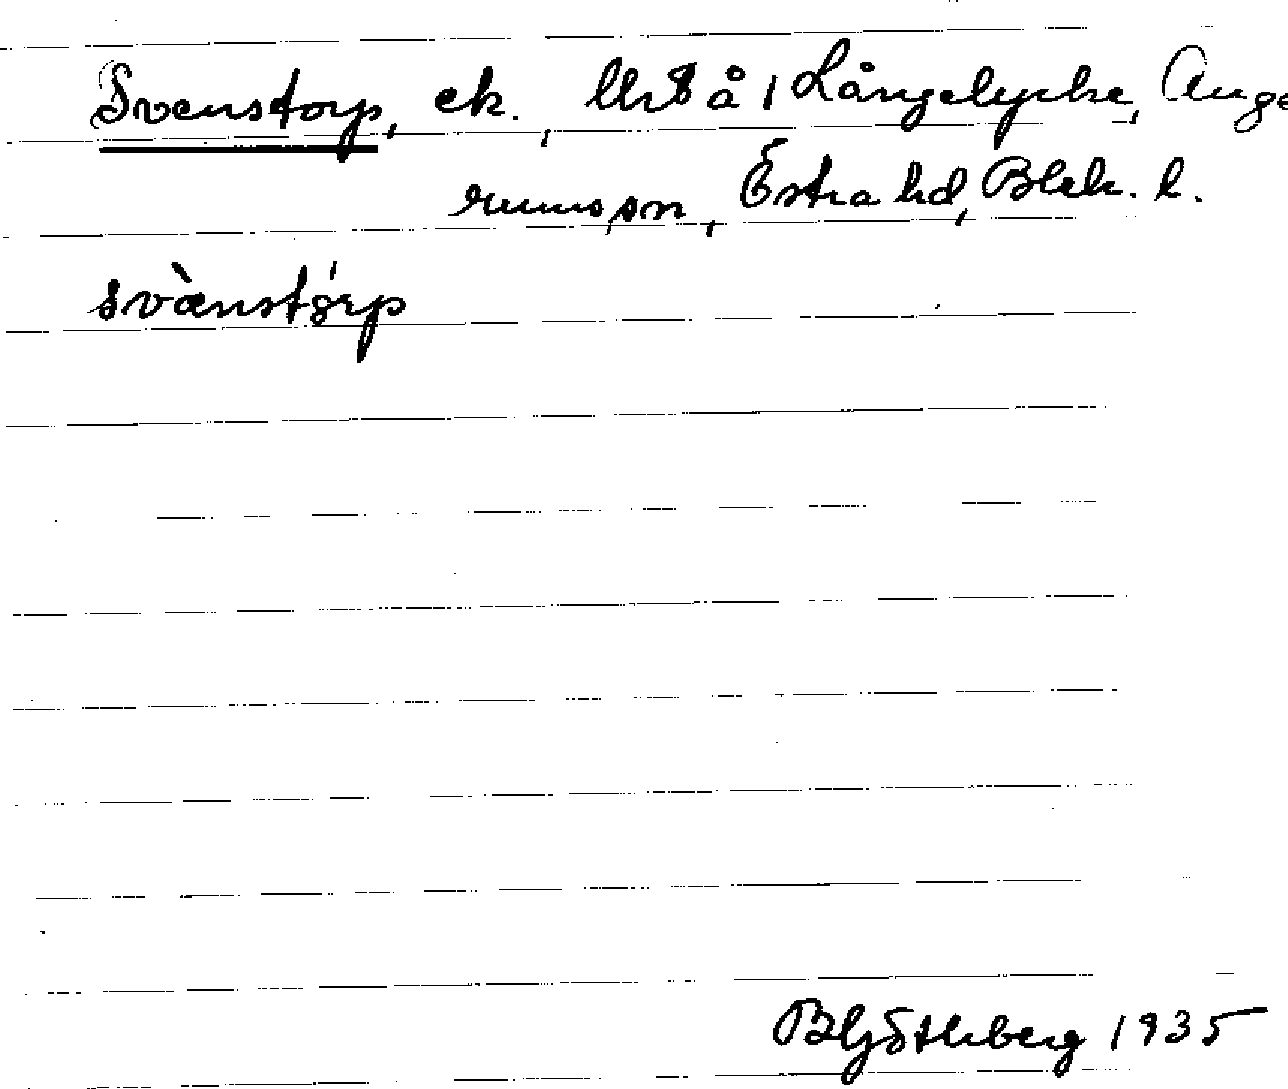 Svenstorp, ek., Urs å 1 Långelycke, Ange
rums sn, Östra hd, Blek. l.
svὰnstǿrp
BGötlberg 1935